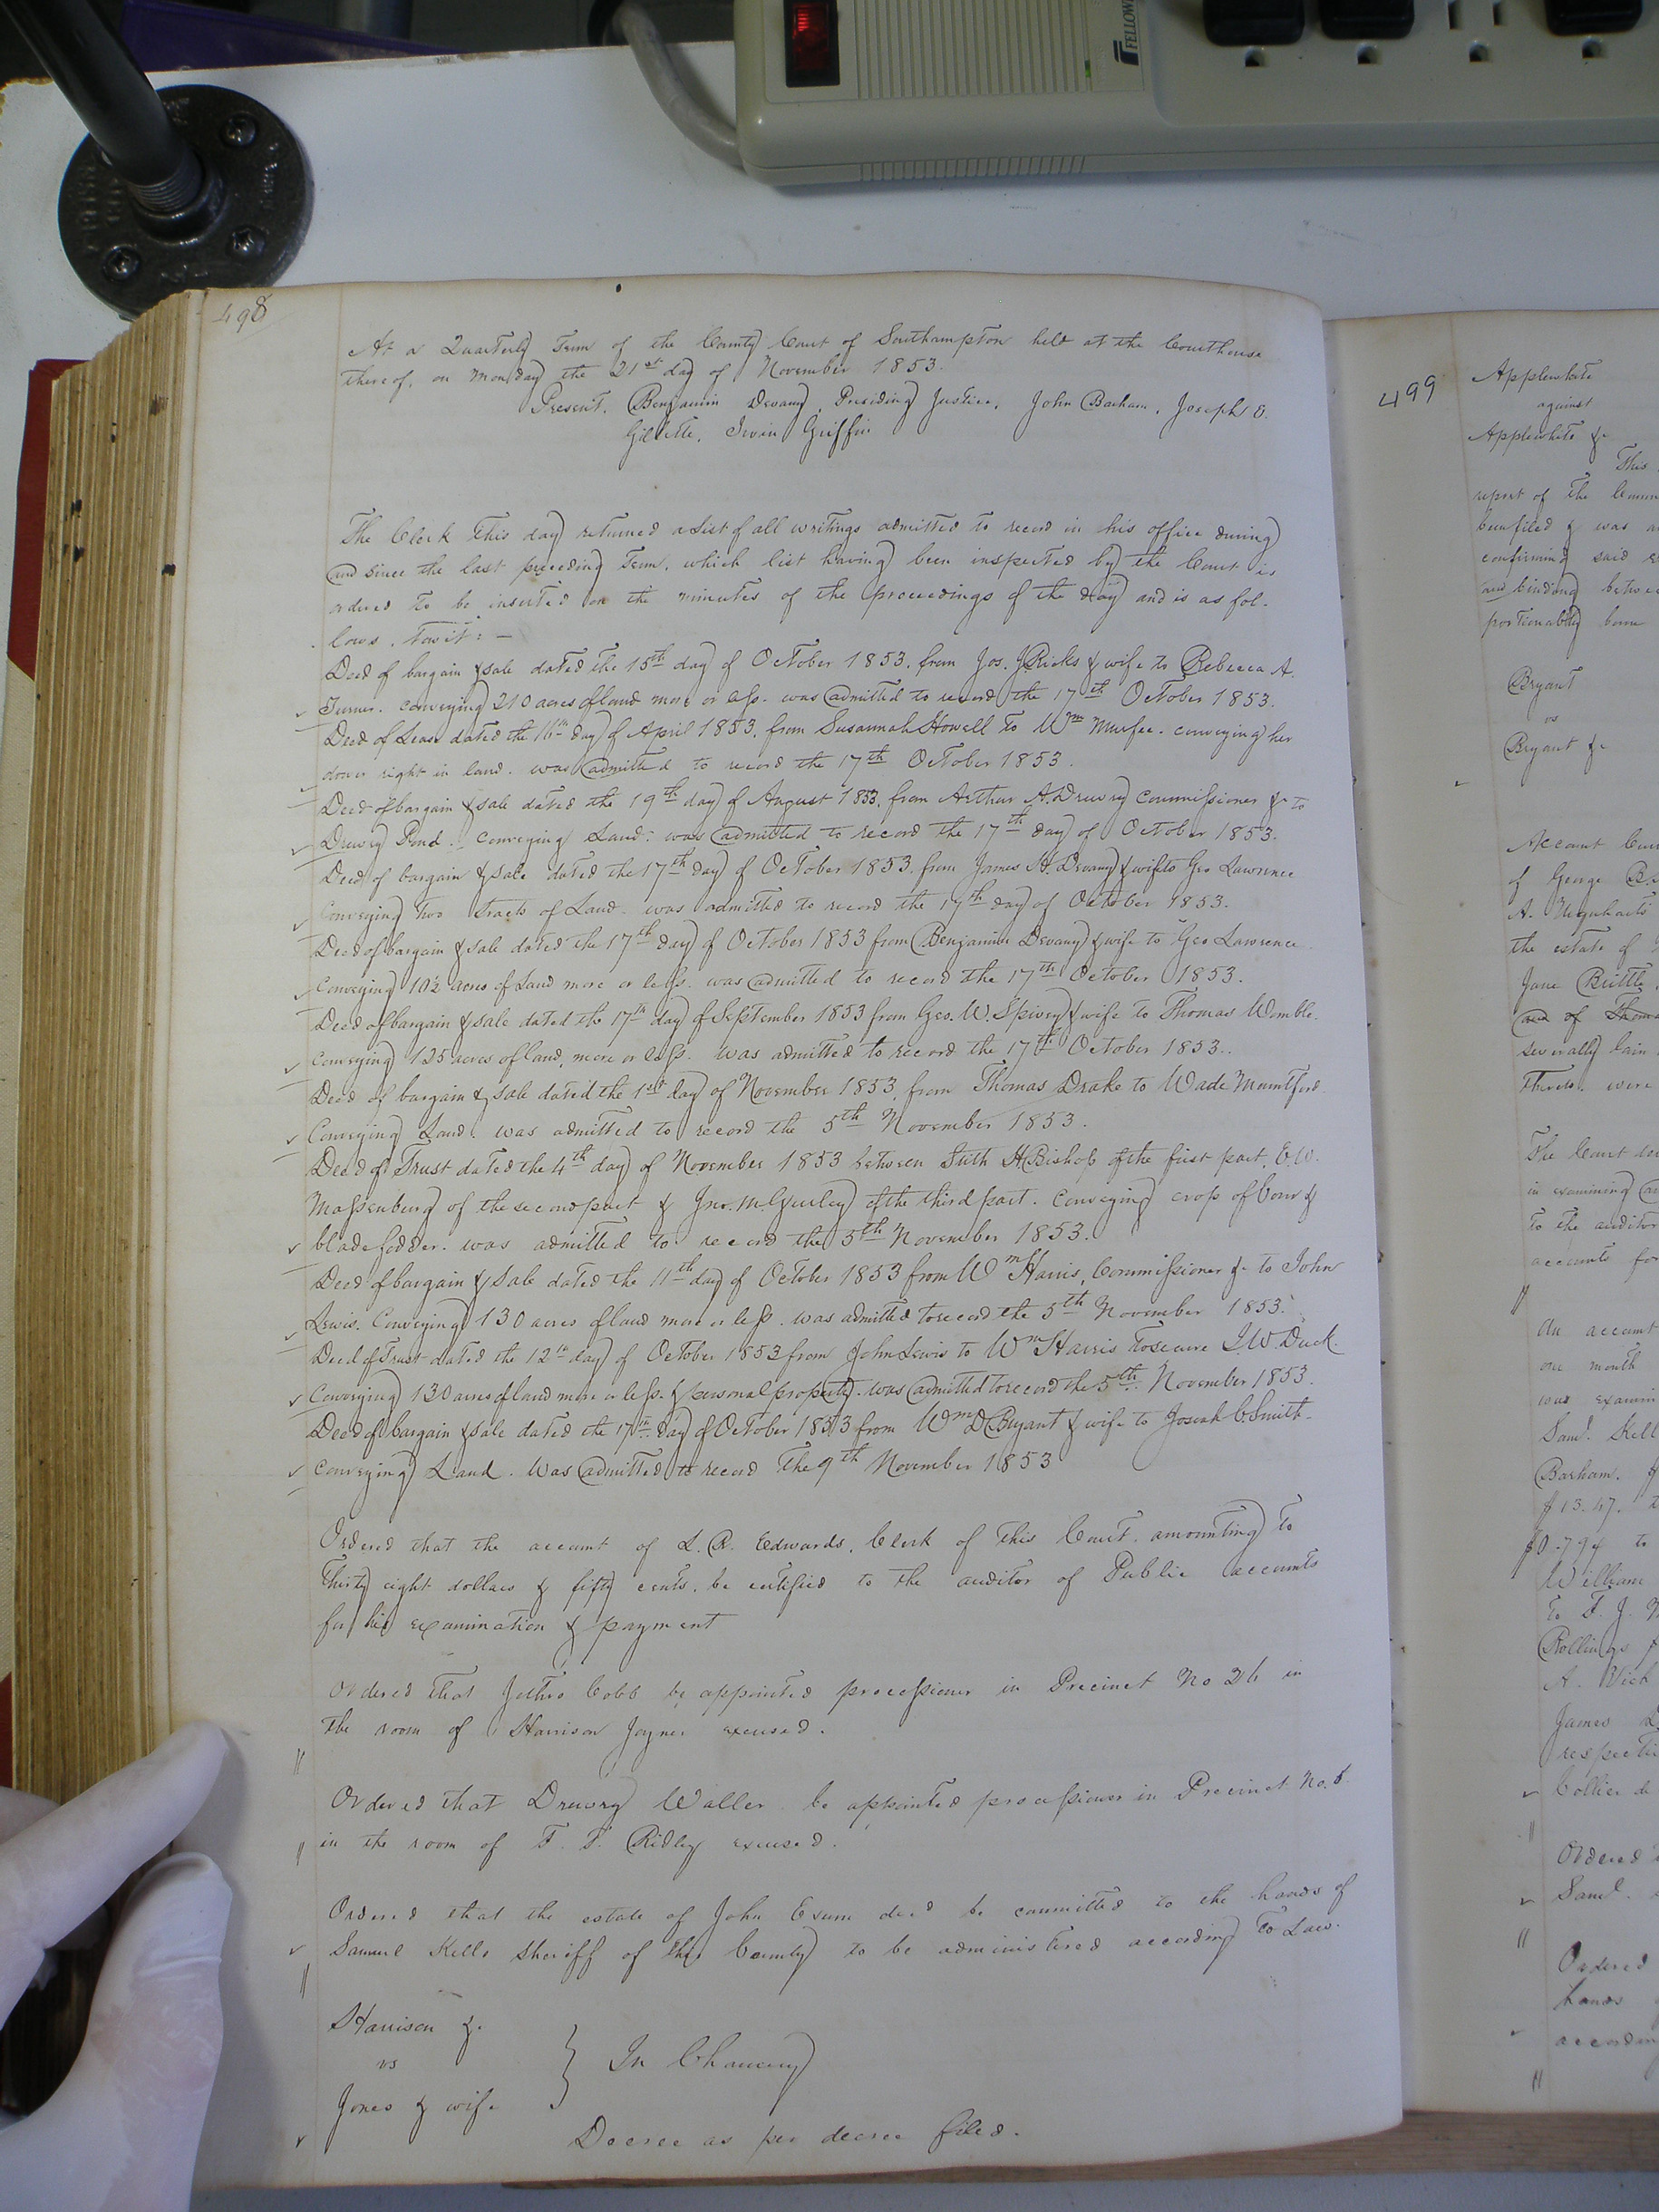 FELLOWE
498
At a Quarterly Term of the County Court of Southampton held at the Courthouse
thereof, on Monday the 21st day of November 1853.
Present. Benjamin Devany, Presiding Justice, John Barham, Joseph E.
Gillette, Irvin Griffin
The Clerk this day returned a List of all writings admitted to record in his office during
and since the last preceeding Term, which list having been inspected by the Court is
ordered to be inserted on the minutes of the proceedings of the day and is as fol-
lows. Towit: —
Deed of bargain & sale dated the 15th day of October 1853. from Jos. J. Ricks & wife to Rebecca A.
Turner. conveying 210 acres of land more or less. was admitted to record the 17th October 1853.
Deed of Lease dated the 16th day of April 1853, from Susannah Howell to Wm Murfee. conveying her
dower right in land. was admitted to record the 17th October 1853.
Deed of bargain & sale dated the 19th day of August 1853, from Arthur A. Drewry Commissioner &c to
Drewry Pond. conveying Land: was admitted to record the 17th day of October 1853.
Deed of bargain & sale dated the 17th day of October 1853. from James H. Devany & wife to Geo Lawrence
Conveying two tracts of Land. was admitted to record the 17th day of October 1853.
Deed of bargain & sale dated the 17th day of October 1853 from Benjamin Devany & wife to Geo Lawrence
Conveying 102 acres of Land more or less. was admitted to record the 17th October 1853.
Deed of bargain & sale dated the 17th day of September 1853 from Geo. W. Spivey & wife to Thomas Womble.
Conveying 125 acres of land, more or less. was admitted to record the 17th October 1853.
Deed of bargain & sale dated the 1st day of November 1853, from Thomas Drake to Wade Mumtford
Conveying Land. was admitted to record the 5th November 1853.
Deed of Trust dated the 4th day of November 1853 between Suth H Bishop of the first part, E. W.
Massenburg of the second part & Jno. M Gurley of the third part. Conveying crop of Corn &
blade fodder. was admitted to record the 5th November 1853.
Deed of bargain & sale dated the 11th day of October 1853 from Wm Harris, Commissioner &c to John
Lewis. Conveying 130 acres of land more or less. was admitted to record the 5th November 1853.
Deed of Trust dated the 12th day of October 1853 from John Lewis to Wm Harris to secure I. W Duck.
Conveying 130 acres of land more or less. & personal property. was admitted to record the 5th November 1853.
Deed of bargain & sale dated the 17th day of October 1853 from Wm D Bryant & wife to Josiah C Smith.
conveying Land. Was admitted to record the 9th November 1853
Ordered that the account of L. R. Edwards, Clerk of this Court. amounting to
Thirty eight dollars & fifty cents. be certified to the auditor of Public accounts
for his examination & payment
Ordered that Jethro Cobb be appointed processioner in Precinct No 26 in
the room of Harrison Joyner excused.
Ordered that Drewry Waller be appointed processioner in Precinct No. 8.
in the room of F. T. Ridley excused.
Ordered that the estate of John Exum decd be committed to the hands of
Samuel Kello Sheriff of this County to be administered according to Law.
Harrison &c
vs } In Chancery
Jones & wife
Decree as per decree filed.
499
Applewhite
against
Applewhite &c
This
report of the
been filed & was
confirming said
and binding
portionably born
Bryant
vs
Bryant &c
Account
of George
A. Urquharts
the estate of
Jane Brittle
and of Thom
severally
thereto. were
The Court
in examining
to the auditor
accounts for
An account
one month
was examin
Saml. Kell
Barham. $
$13.47.
$0.794 to
William
to T. J.
Rollings
A. Vick
James
respecti
Collier
Ordered
Saml.
Ordered
hands
according